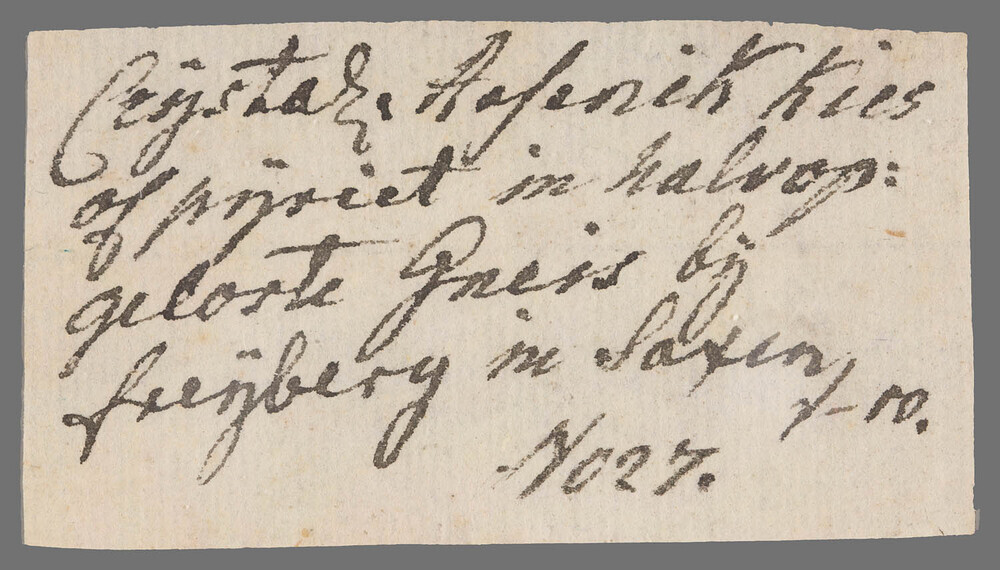 Crÿstal: Arsenik Kies
of pÿriet in halvop:
geloste Gneis bÿ
freÿberg in Saxen
f – 10.
No 27.